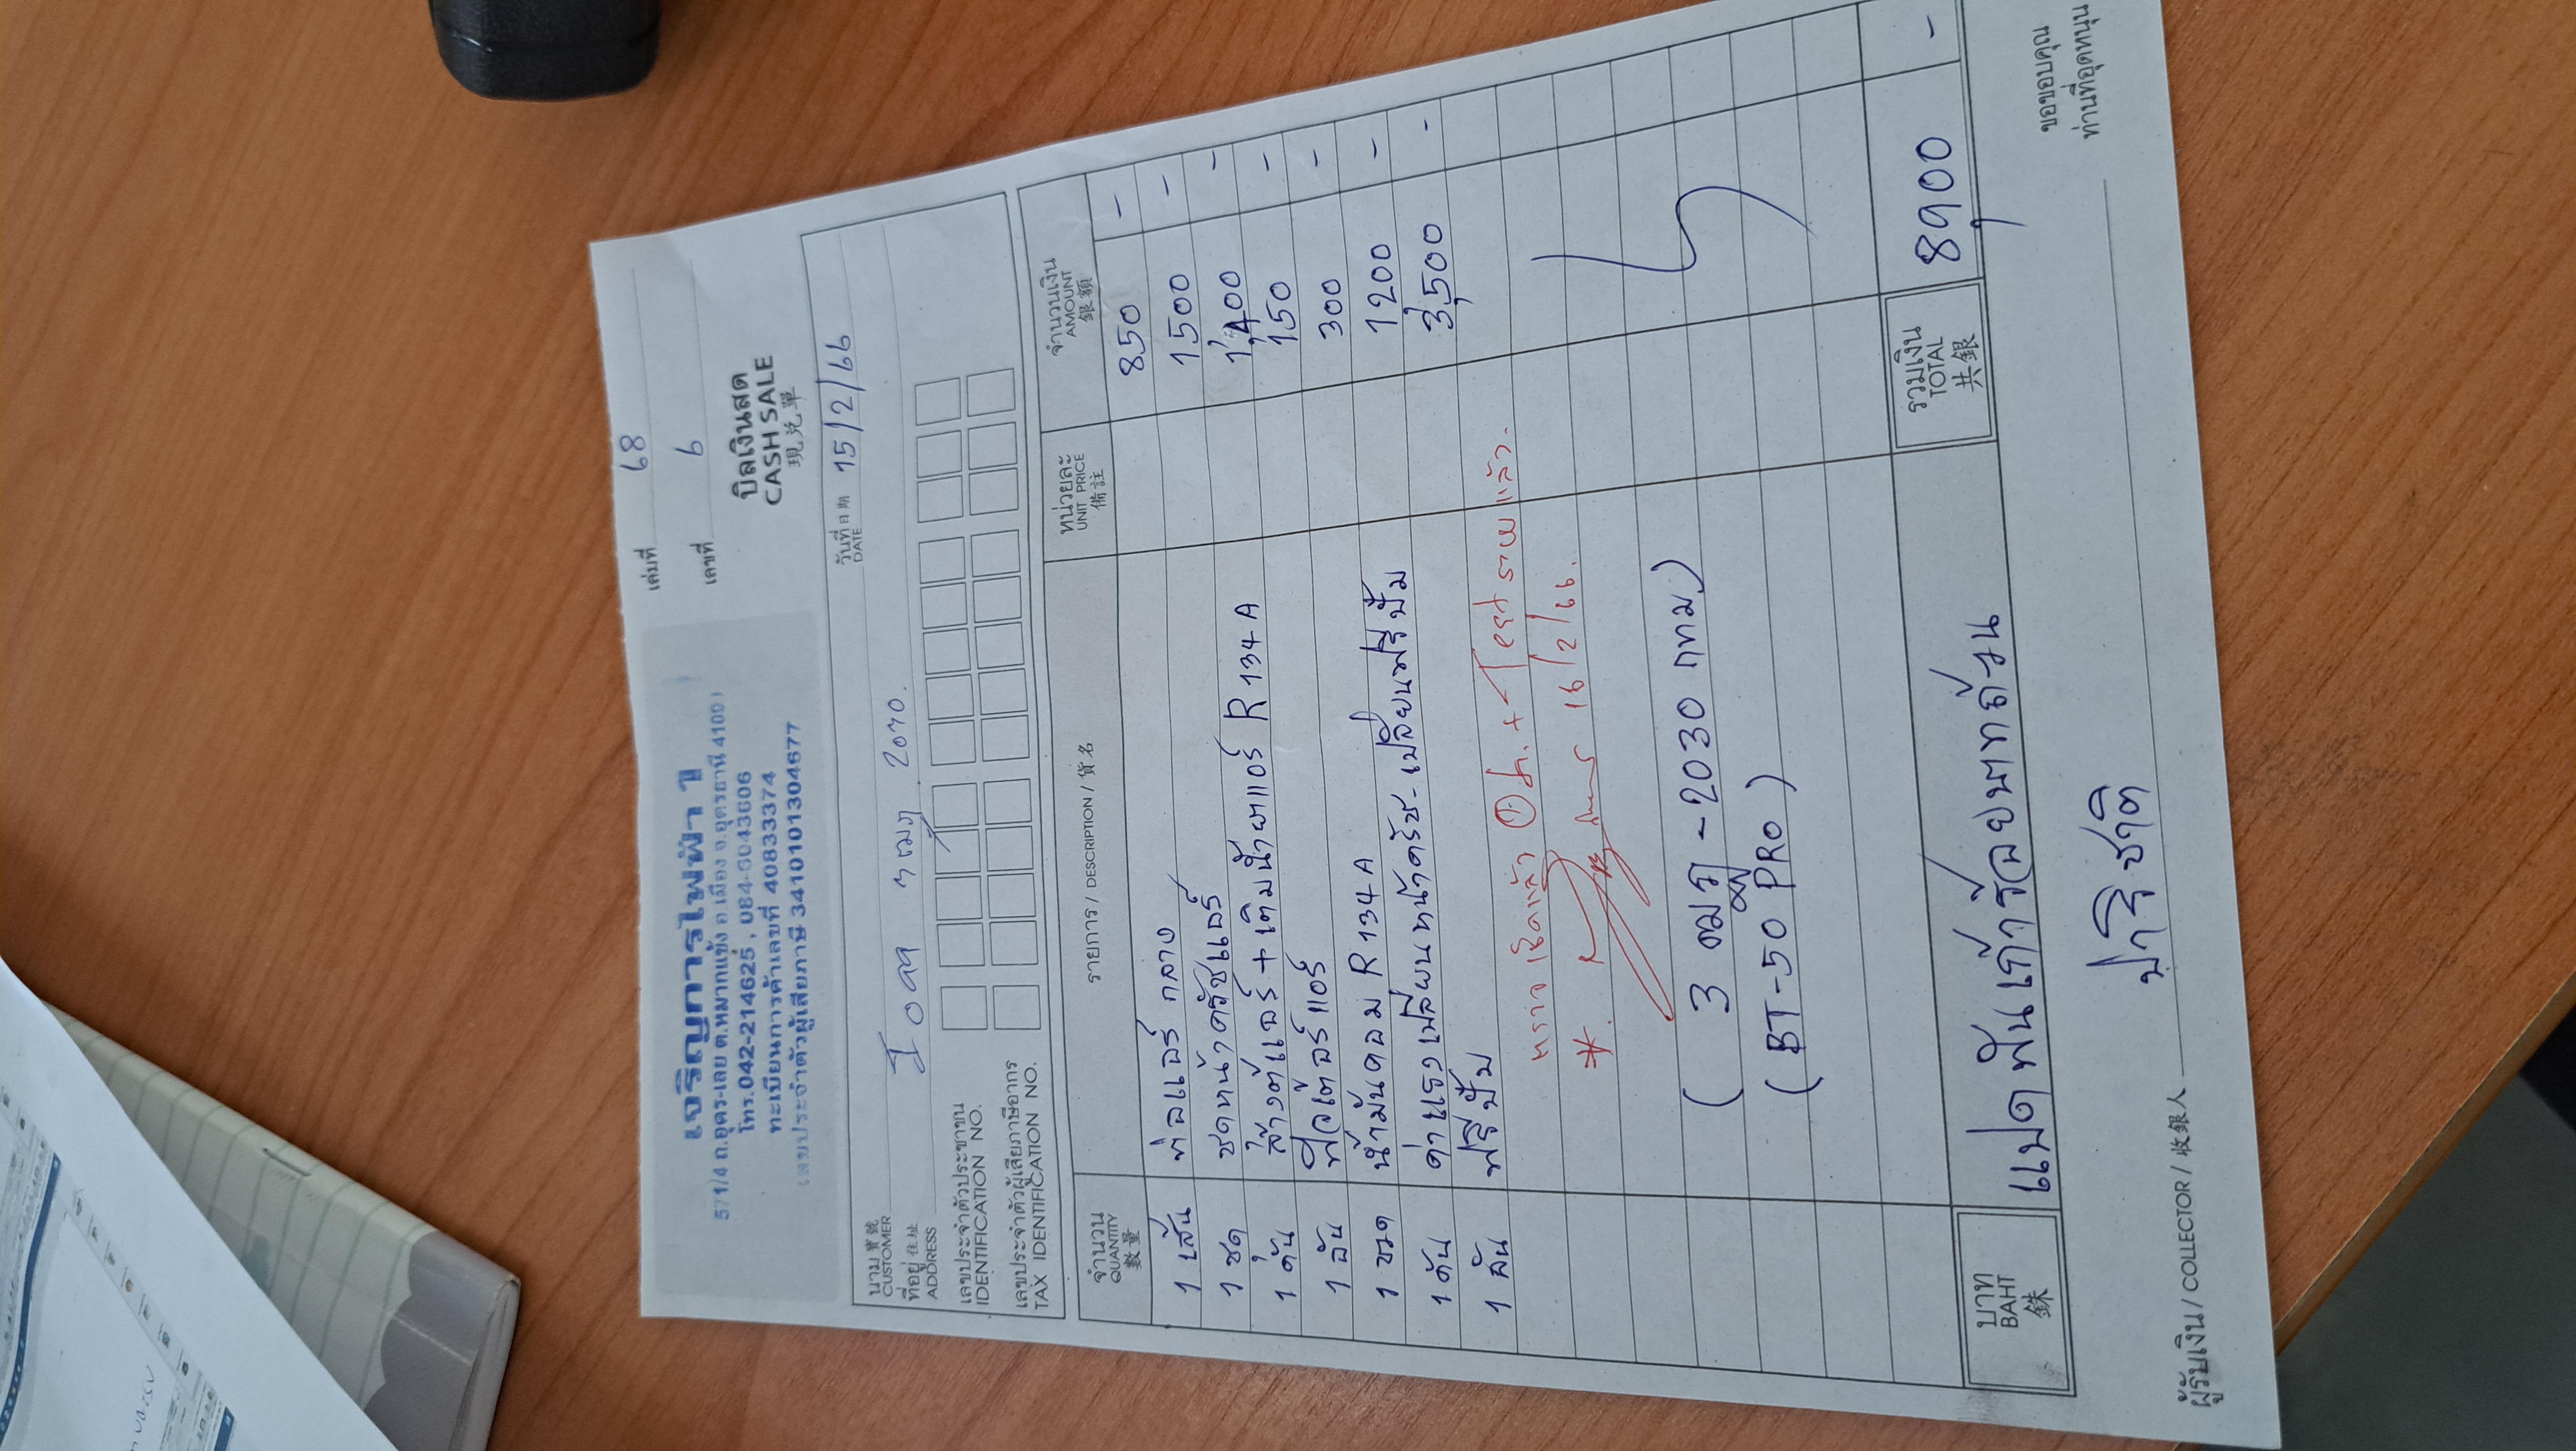 เล่มที่ 68
เลขที่ 6
เจริญการไฟฟ้า 1
571/4 ถ.อุดร-เลย ต.หมากแข้ง อ.เมือง จ.อุดรธานี 41000
โทร.042-214625 , 084-6043606
ทะเบียนการค้าเลขที่ 40833374
เลขประจำตัวผู้เสียภาษี 3410101304677
บิลเงินสด
CASH SALE
現兌單
วันที่ 日期 15/2/66
DATE
นาม 寶號
CUSTOMER
ที่อยู่ 住址
ADDRESS
เลขประจำตัวประชาชน
IDENTIFICATION NO.
เลขประจำตัวผู้เสียภาษีอากร
TAX IDENTIFICATION NO.
จำนวน QUANTITY 數量 รายการ / DESCRIPTION / 貨名 หน่วยละ UNIT PRICE 備註 จำนวนเงิน AMOUNT 銀額
1 เส้น ท่อแอร์ กลาง 850 -
1 ชุด ชุดหน้าครัชแอร์ 1500 -
1 คัน ล้างตู้แอร์ + เติมน้ำยาแอร์ R 134 A 1,400 -
1 อัน ฟิลเตอร์แอร์ 150 -
1 ขวด น้ำมันคอม R 134 A 300 -
1 คัน ค่าแรงเปลี่ยนหน้าครัช - เปลี่ยนฟรีปั๊ม 1200 -
1 อัน ฟรีปั๊ม 3,500 -
16/2/66.
(3 ฒฎ - 2030 กทม)
(BT-50 PRO)
บาท BAHT 銖 แปดพันเก้าร้อยบาทถ้วน รวมเงิน TOTAL 共銀 8,900 -
ผู้รับเงิน / COLLECTOR / 收銀人 ปาริชาติ
ขอขอบคุณ
ท่านที่อุดหนุน